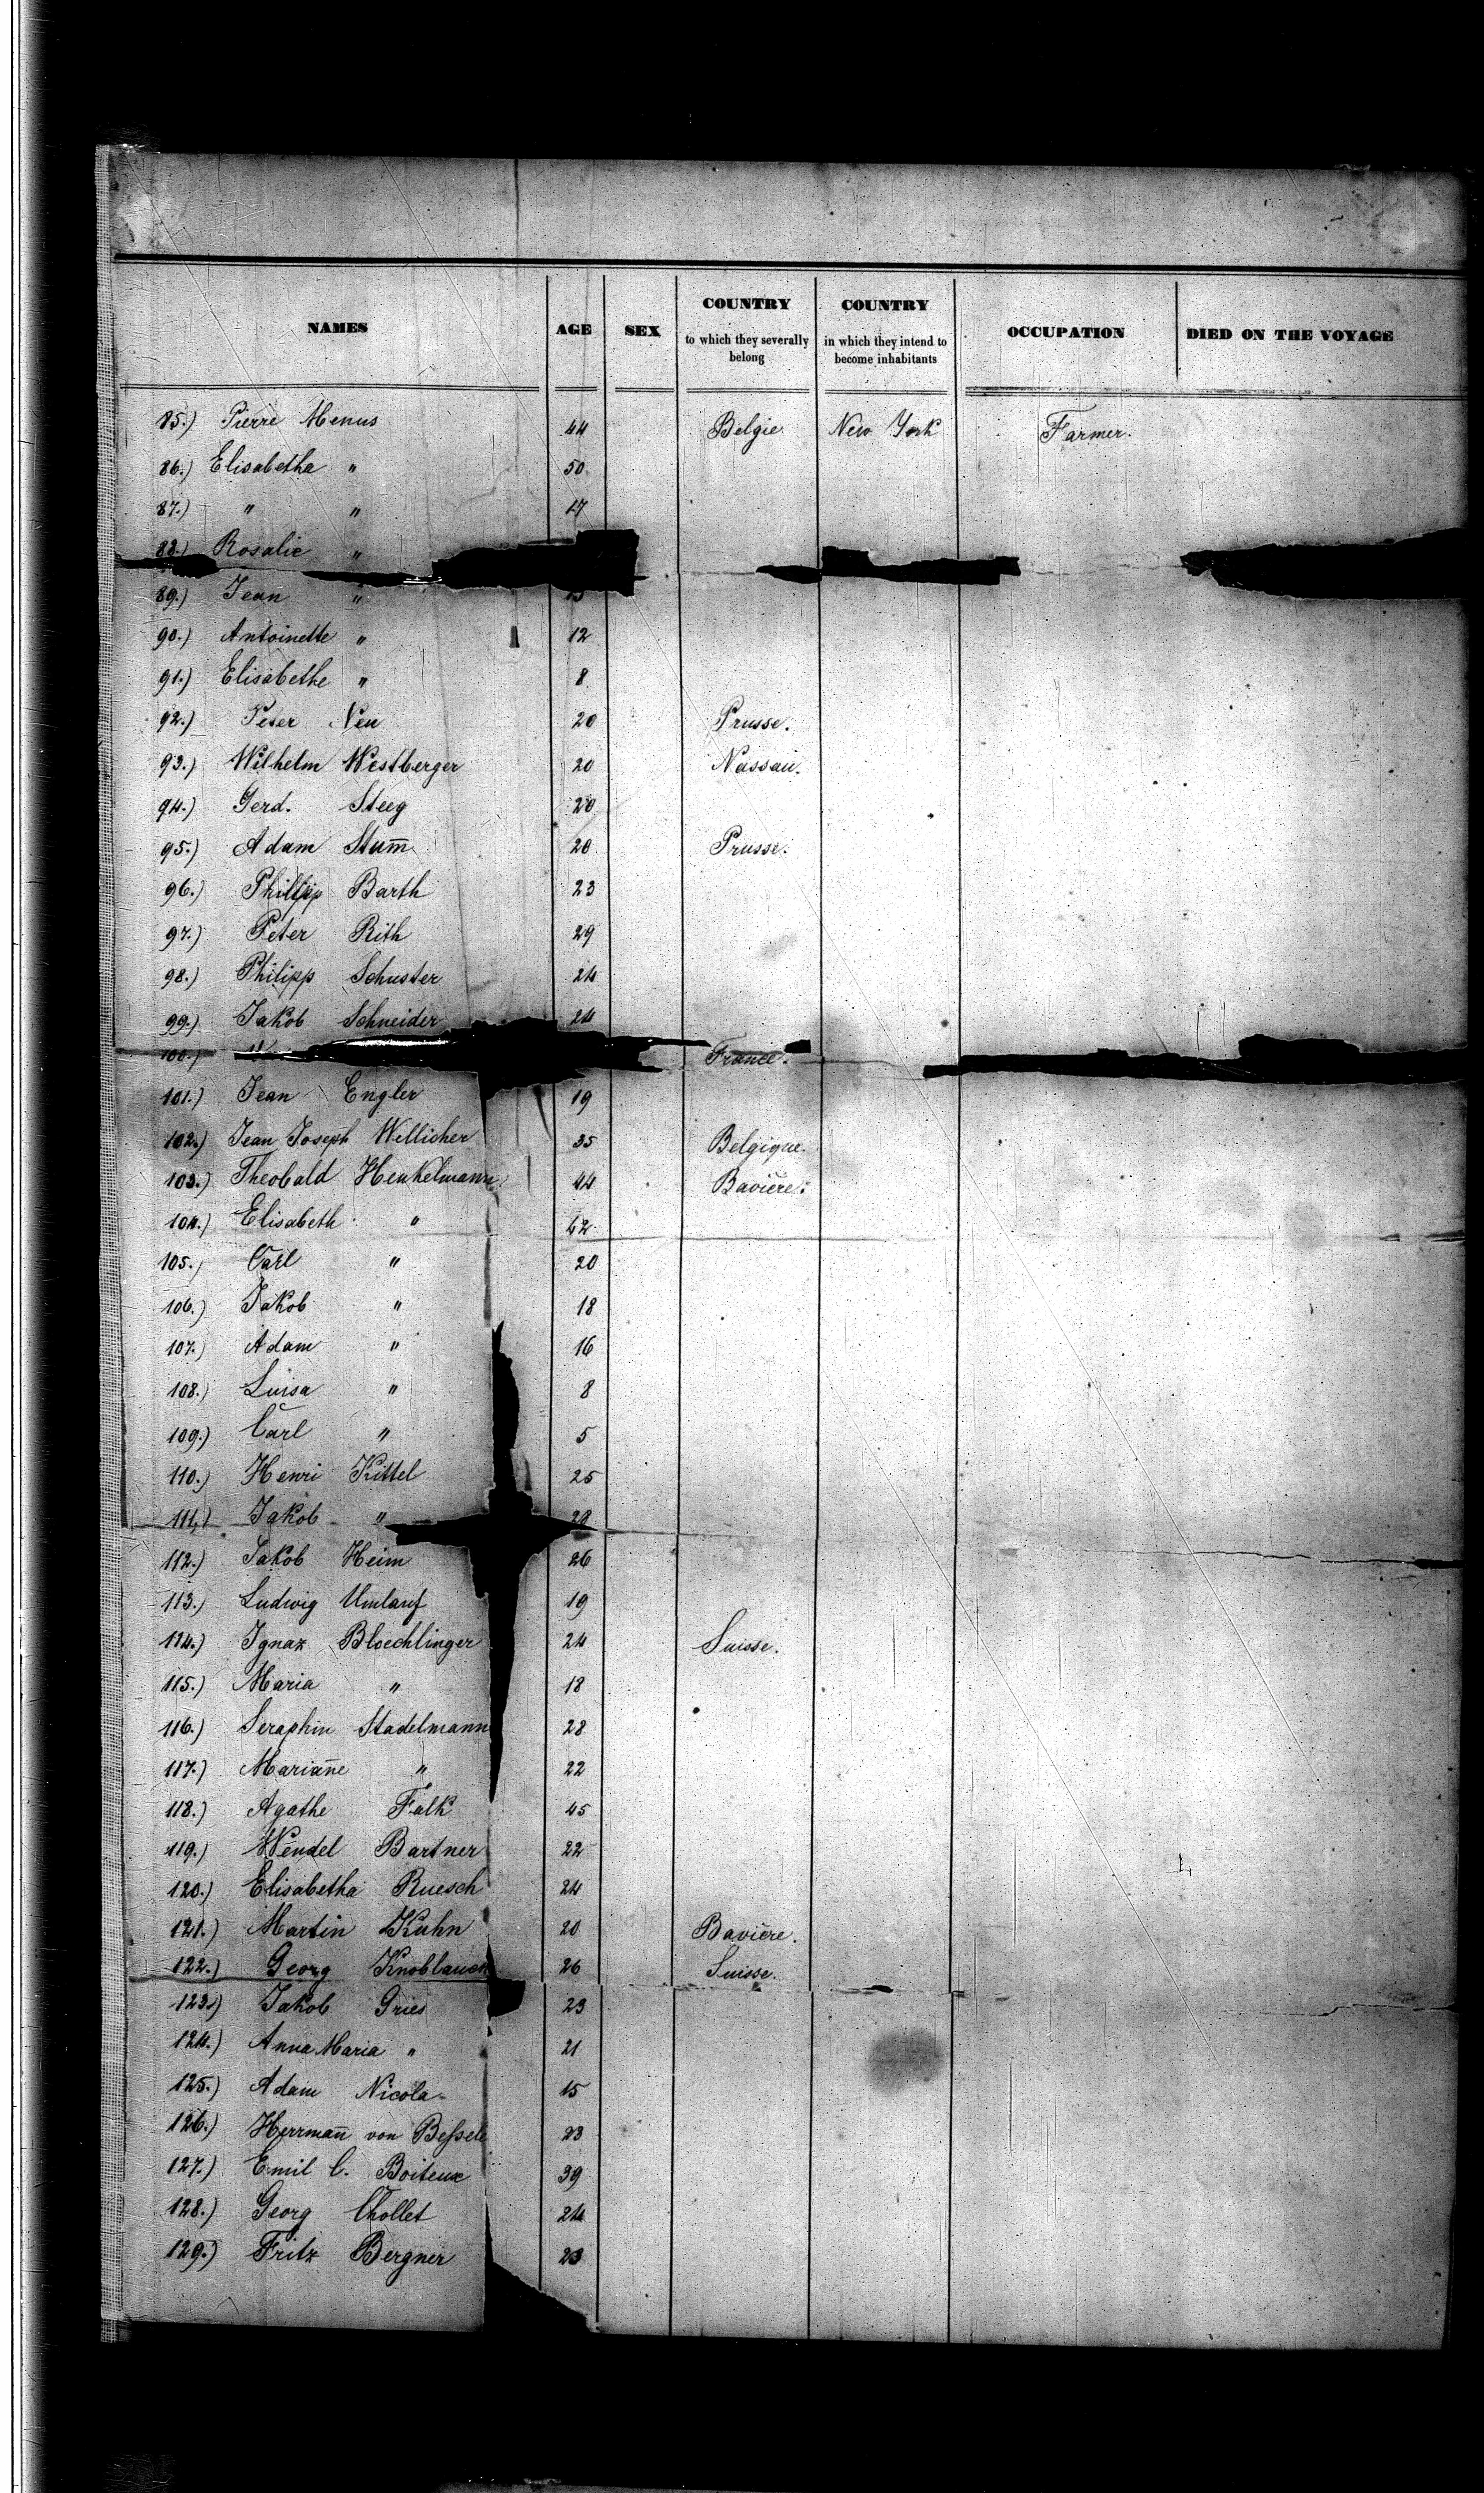 NAMES AGE SEX COUNTRY to which they severally belong COUNTRY in which they intend to become inhabitants OCCUPATION DIED ON THE VOYAGE
85.) Pierre Menus 44 Belgie New York Farmer.
86.) Elisabetha " 50
87.) " " 17
88.) Rosalie "
89.) Jean "
90.) Antoinette " 12
91.) Elisabethe " 8
92.) Peter Neu 20 Prusse.
93.) Wilhelm Westberger 20 Nassau.
94.) Gerd. Steeg 20
95.) Adam Stum̅ 20 Prusse.
96.) Philipp Barth 23
97.) Peter Rith 29
98.) Philipp Schuster 24
99.) Jakob Schneider 24
100.) France.
101.) Jean Engler 19
102.) Jean Joseph Wellicher 35 Belgique.
103.) Theobald Henkelmann 44 Bavière.
104.) Elisabeth " 42
105.) Carl " 20
106.) Jakob " 18
107.) Adam " 16
108.) Luisa " 8
109.) Carl " 5
110.) Henri Kittel 25
111.) Jakob "
112.) Jakob Heim 26
113.) Ludwig Umlauf 19
114.) Ignaz Bloechlinger 24 Suisse.
115.) Maria " 18
116.) Seraphin Stadelmann 28
117.) Marian̅e " 22
118.) Agathe Falk 45
119.) Wendel Bartner 22
120.) Elisabetha Ruesch 24
121.) Martin Kuhn 20 Bavière.
122.) Georg Knoblauch 26 Suisse.
123.) Jakob Gries 23
124.) Anna Maria " 21
125.) Adam Nicola 15
126.) Herrman̅ von 23
127.) Emil C. Boiteux 39
128.) Georg Chollet 24
129.) Fritz Bergner 23